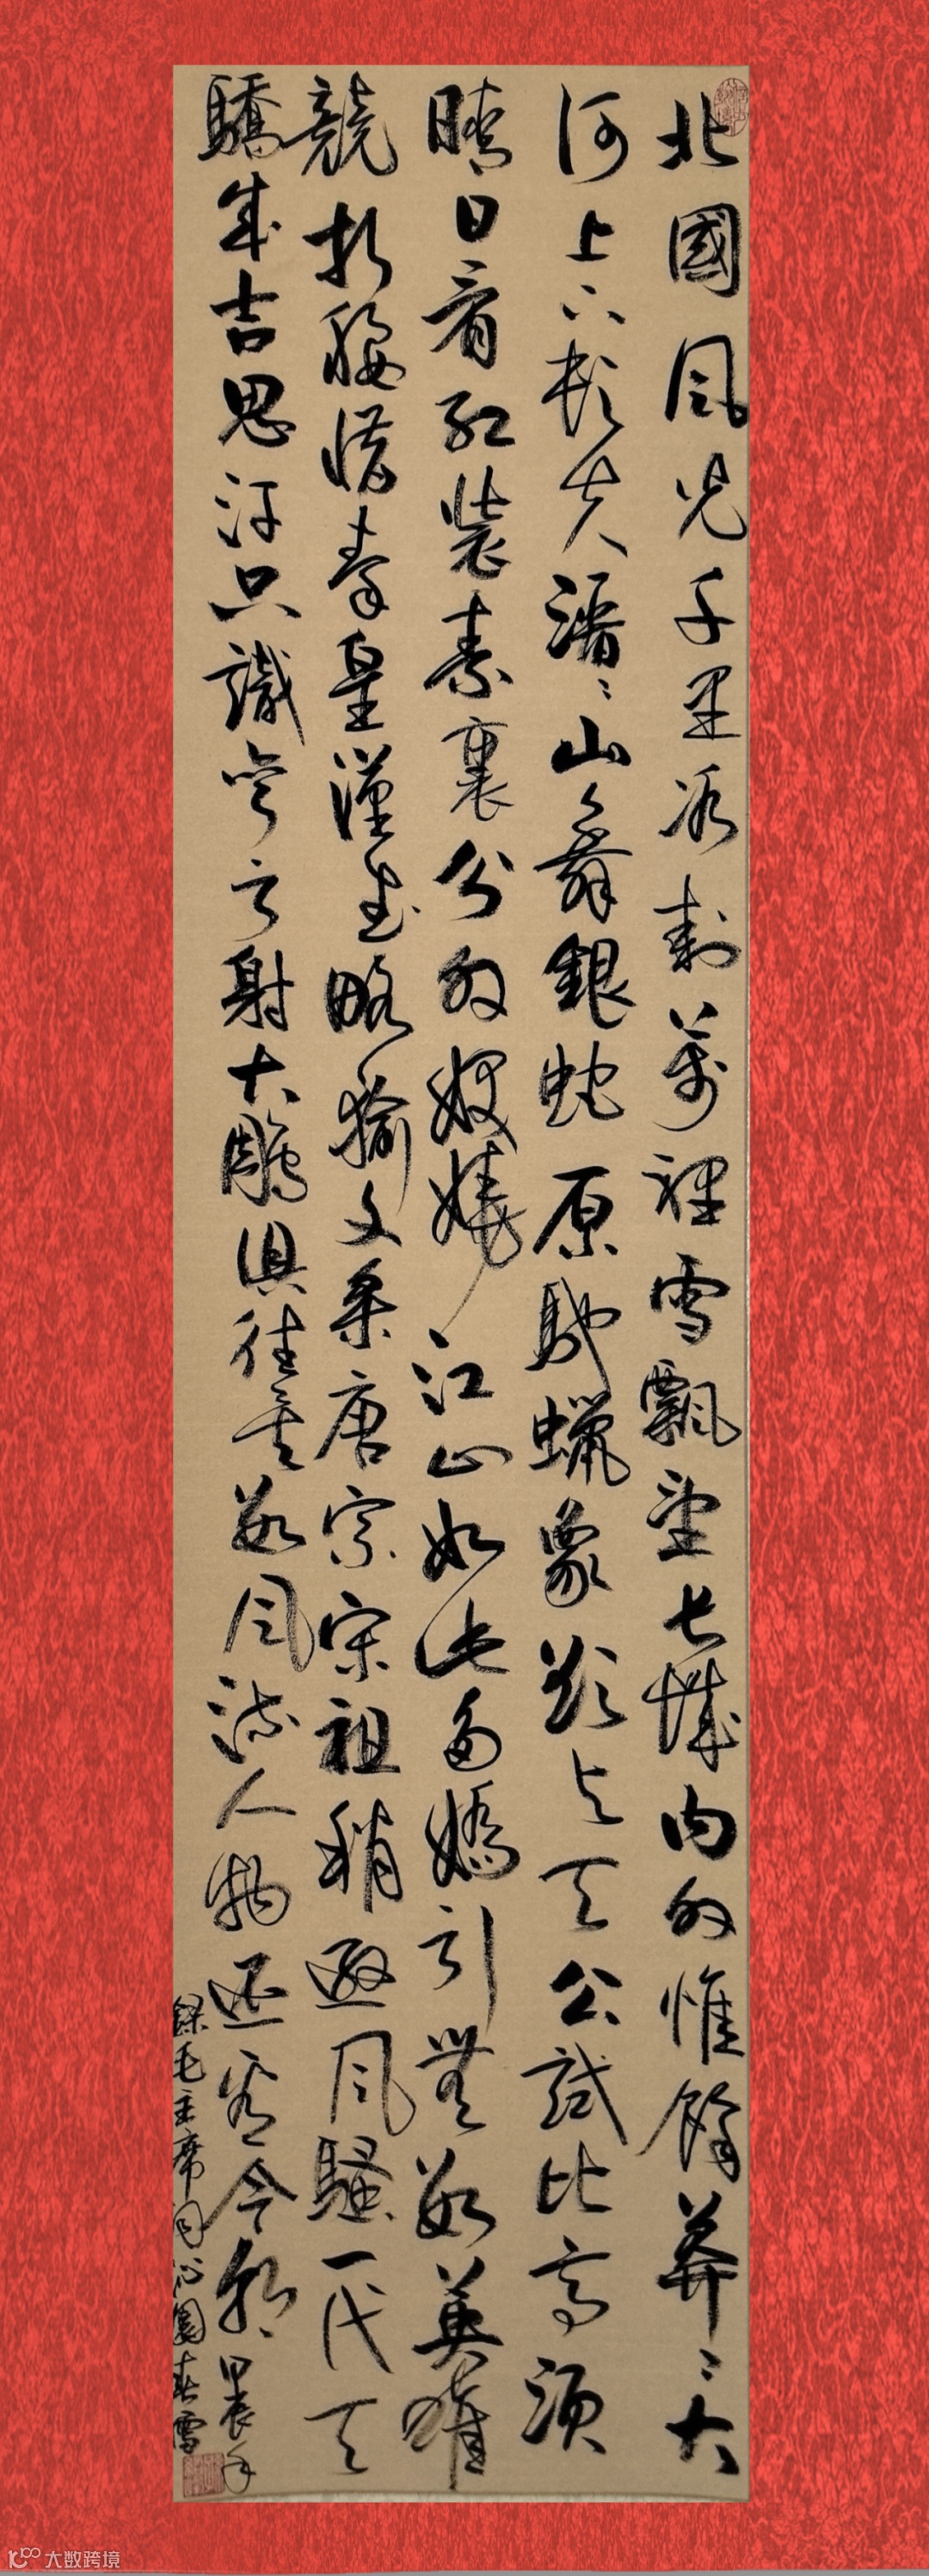 北國風光千里冰封萬裡雪飄望長城内外惟餘莽〻大
河上下頓失滔〻山舞銀蛇原馳蠟象欲与天公試比高須
晴日看紅裝素裹分外妖嬈江山如此多嬌引無數英雄
競折腰惜秦皇漢武略輸文采唐宗宋祖稍遜風騷一代天
驕成吉思汗只識彎弓射大鵰俱往矣數風流人物还看今朝 甲辰年
錄毛主席詞沁園春雪
大数跨境